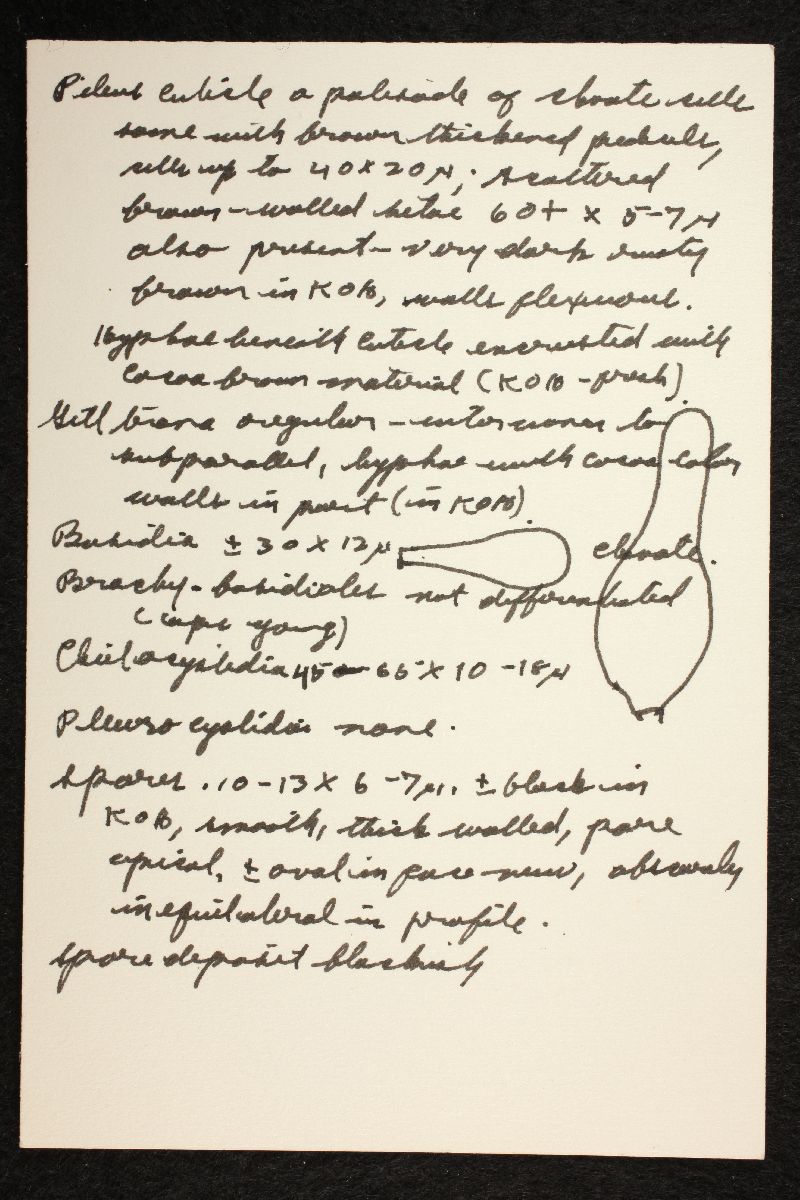 Pileus cuticle a palisade of clavate cells
some with brown thickened pedicels,
cells up to 40 x 20 µ; scattered
brown-walled setae 60+ x 5-7 µ
also present - very dark rusty
brown in KOH, walls flexuous.
Hyphae beneath cuticle encrusted with
cocoa brown material (KOH - fresh)
Gill trama regular - interwoven to
subparallel, hyphae with cocoa color
walls in part (in KOH)
Basidia ± 30 x 12 µ clavate.
Brachy-basidioles not differentiated
(caps young)
Cheilocystidia 45-65 x 10-18 µ
Pleurocystidia none.
Spores. 10-13 x 6-7 µ. ± black in
KOH, smooth, thick walled, pore
apical, ± oval in face view, obscurely
inequilateral in profile.
Spore deposit blackish